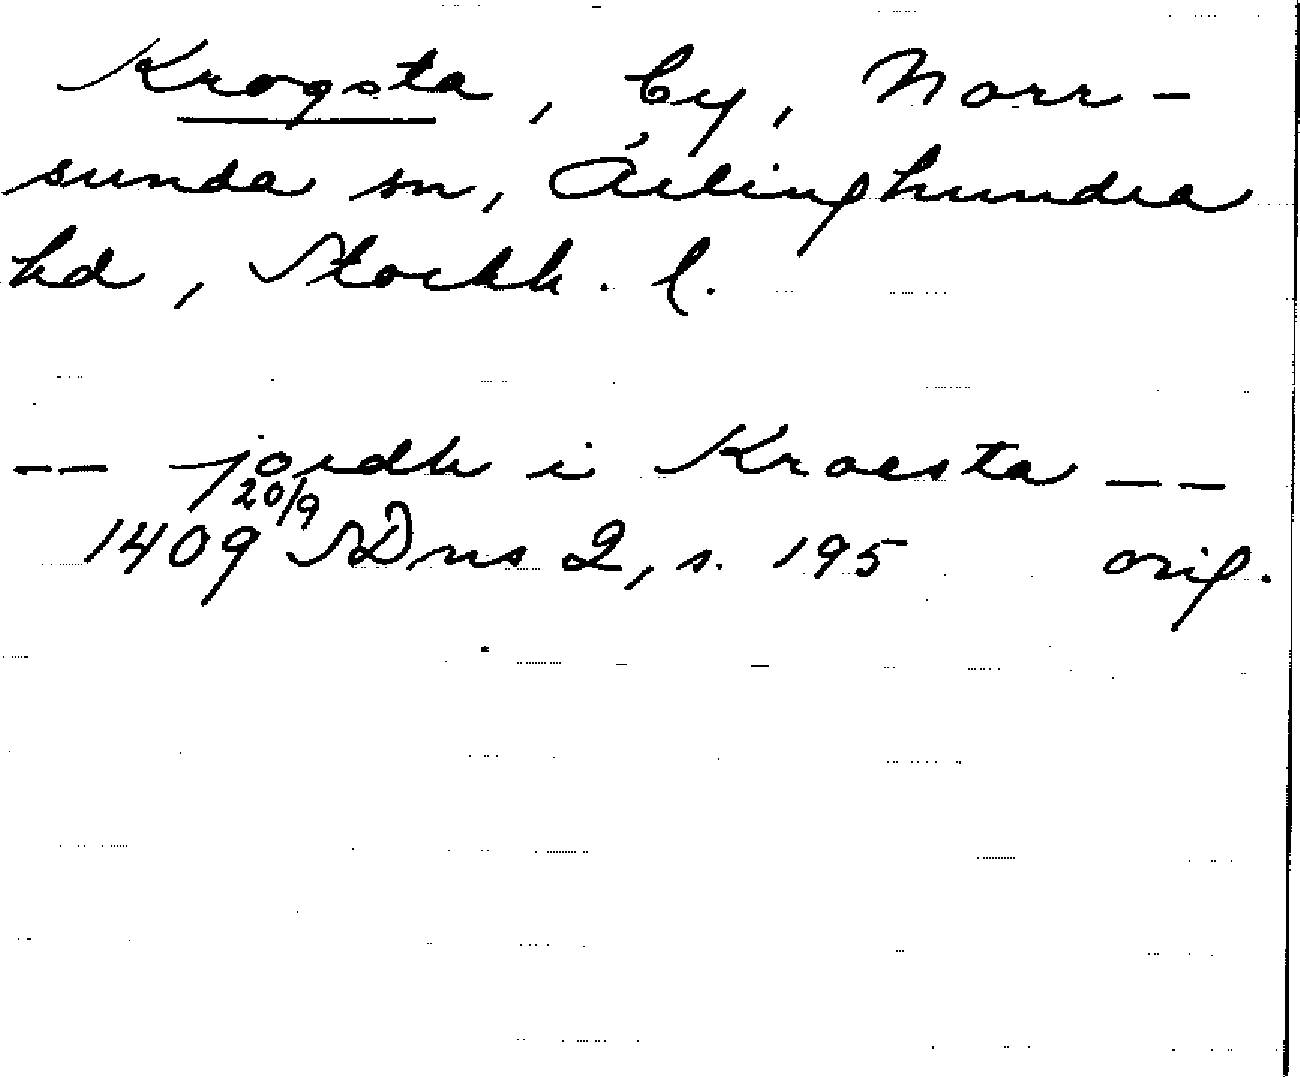 Krogsta, by, Norr-
sunda sn, Ärlinghundra
hd, Stockh. l.
-- jordh i Kroesta --
1409 20/9 SDns 2, s. 195 orig.